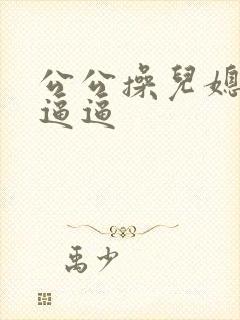 公公操兒媳
逼逼
禹少